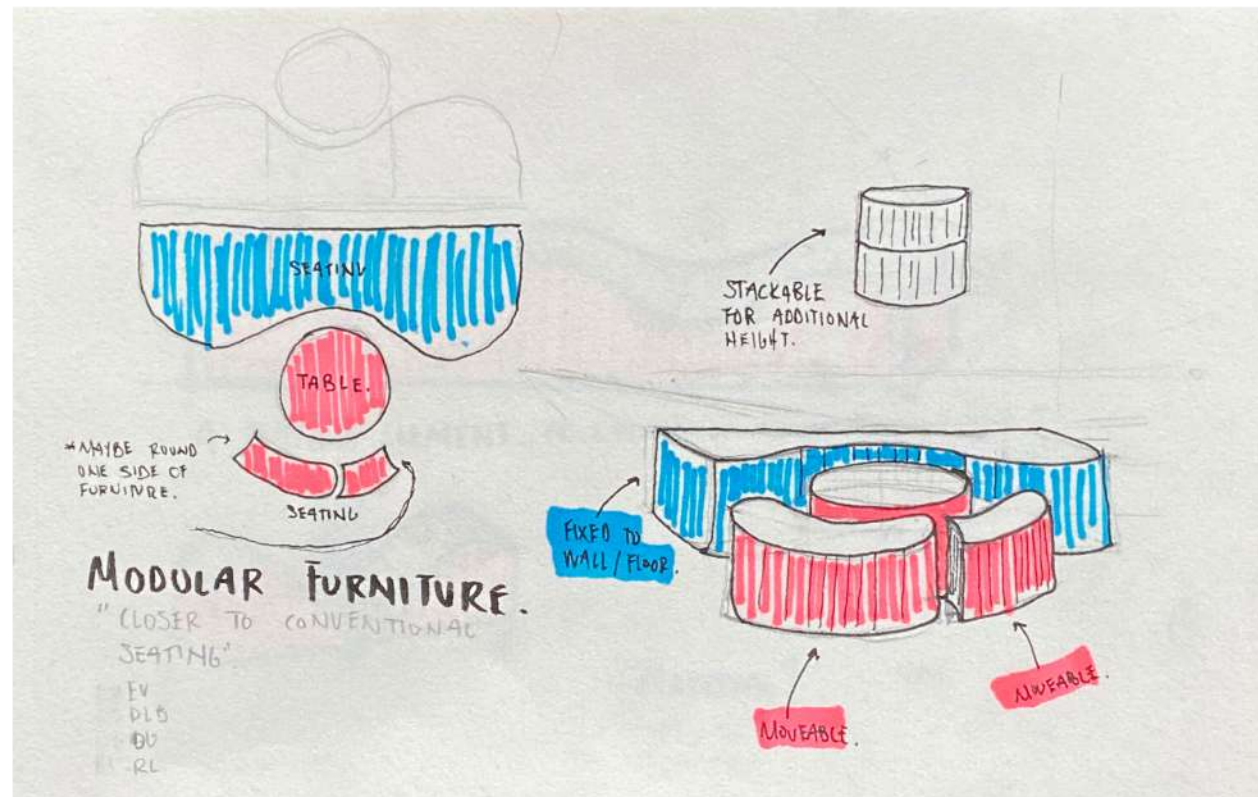 SEATING
TABLE.
*MAYBE ROUND
ONE SIDE OF
FURNITURE.
SEATING
MODULAR FURNITURE.
"CLOSER TO CONVENTIONAL
SEATING".
EV
DLB
RL
STACKABLE
FOR ADDITIONAL
HEIGHT.
FIXED TO
WALL/FLOOR.
MOVEABLE.
MOVEABLE.